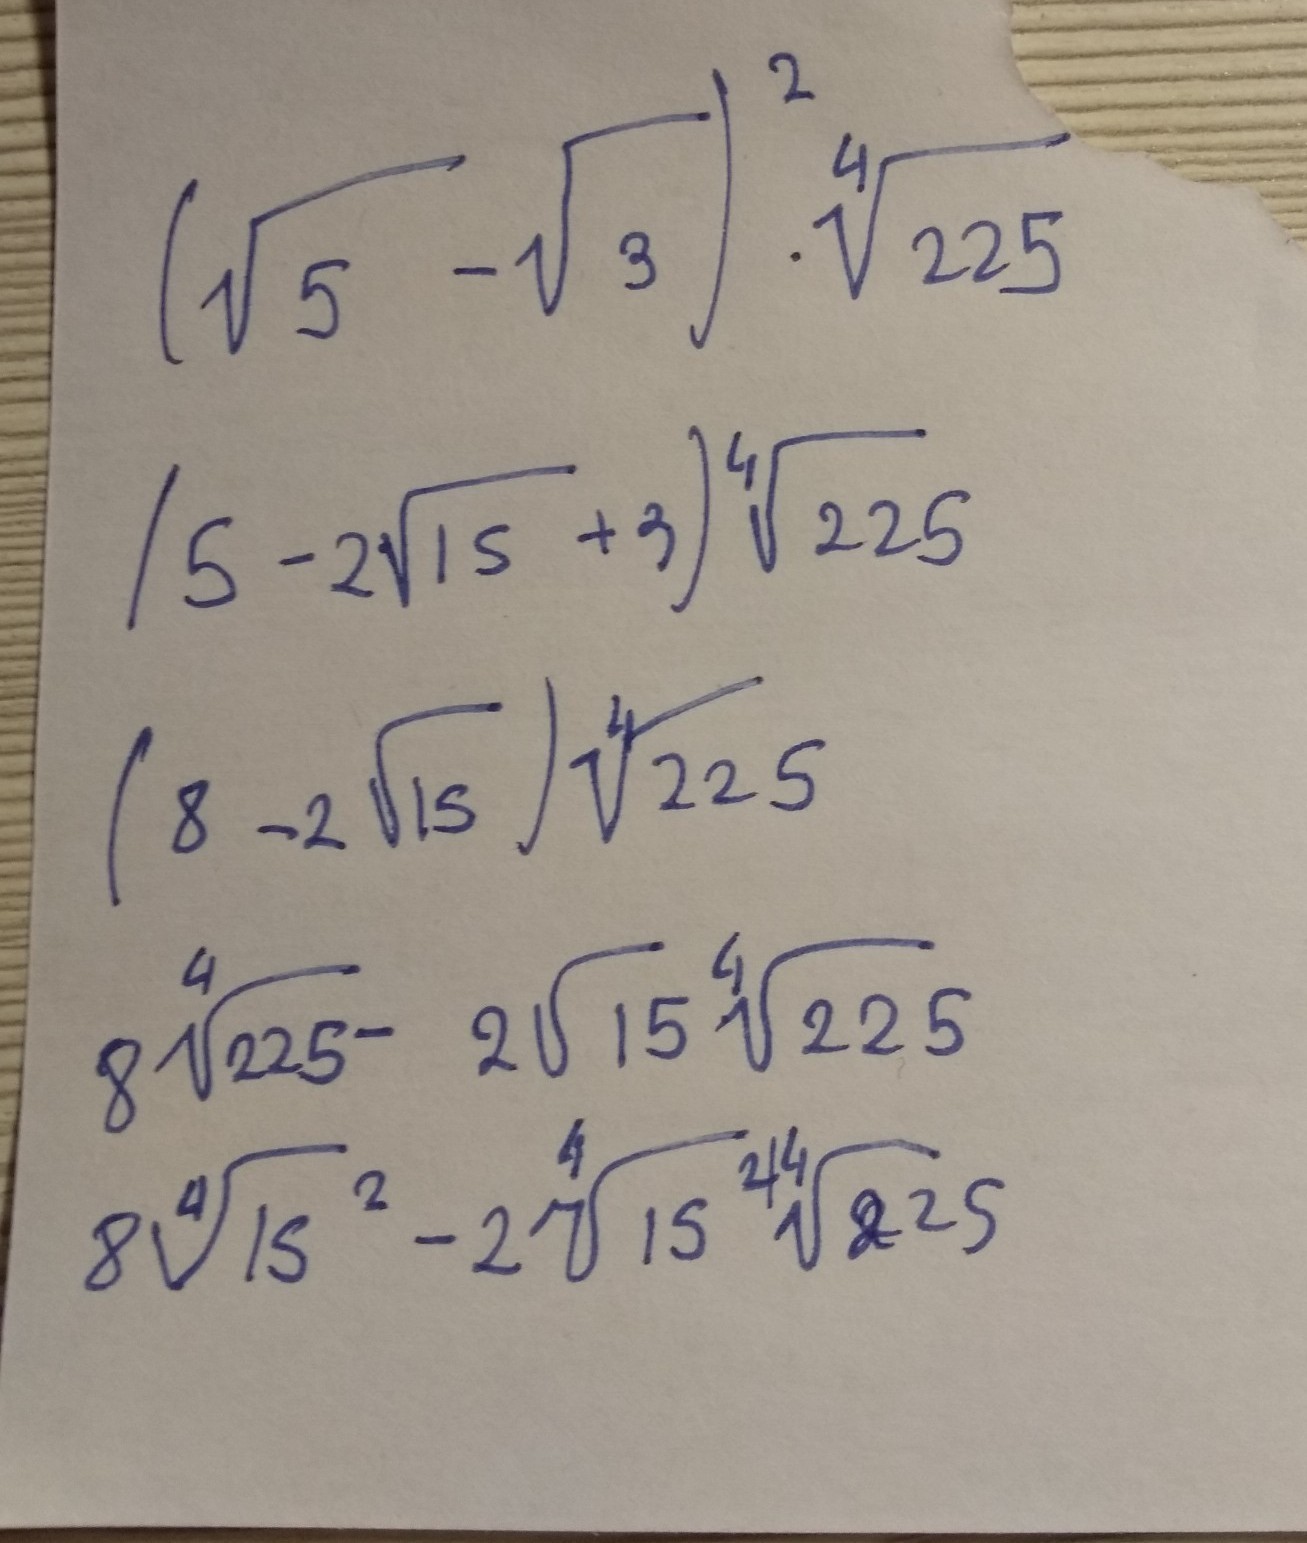 (√5 - √3)² · ⁴√225
(5 - 2√15 + 3) ⁴√225
(8 - 2√15) ⁴√225
8 ⁴√225 - 2√15 ⁴√225
8 ⁴√15² - 2 ⁴√15² ⁴√225